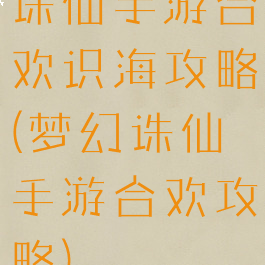 诛仙手游合
欢识海攻略
(梦幻诛仙
手游合欢攻
略)